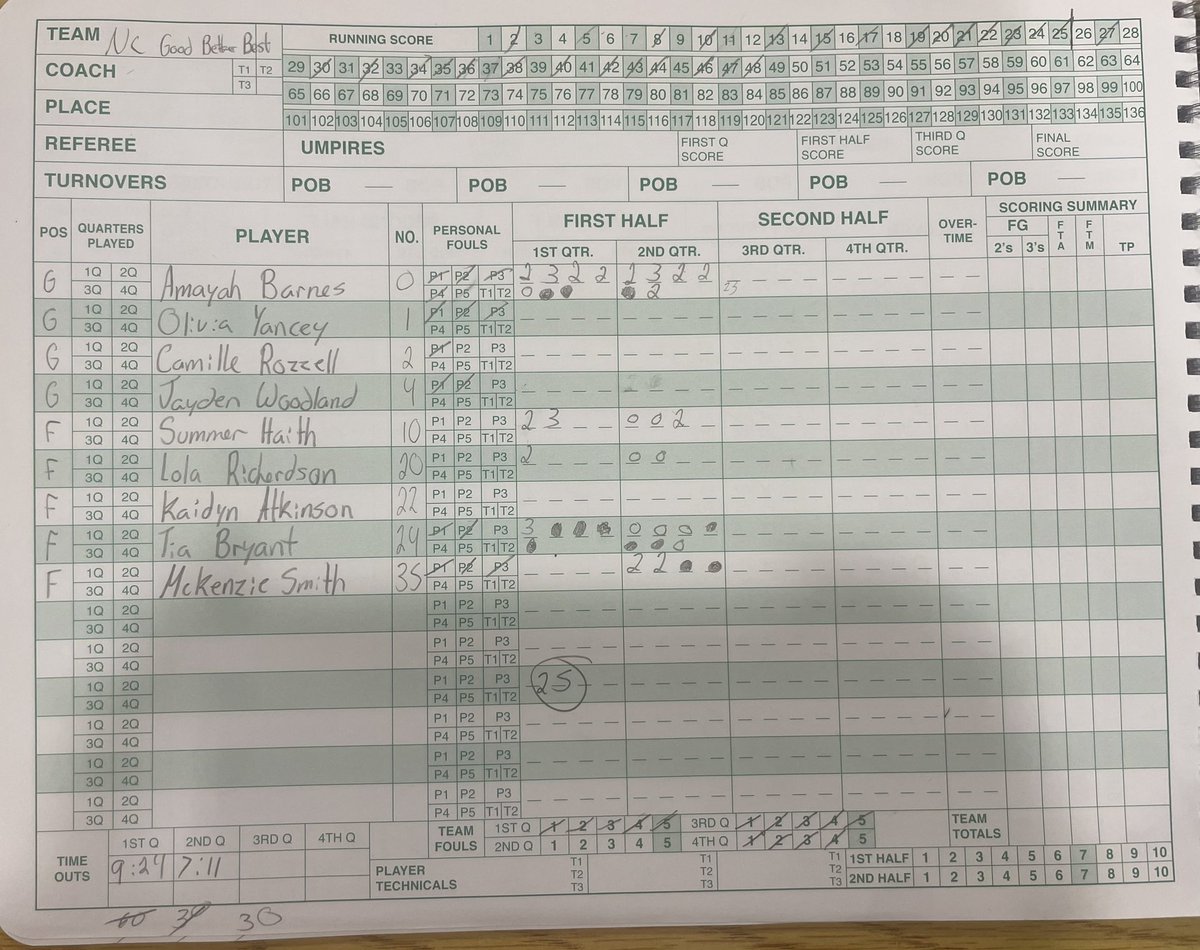 TEAM NC Good Better Best RUNNING SCORE 1 2 3 4 5 6 7 8 9 10 11 12 13 14 15 16 17 18 19 20 21 22 23 24 25 26 27 28
COACH T1 T2 29 30 31 32 33 34 35 36 37 38 39 40 41 42 43 44 45 46 47 48 49 50 51 52 53 54 55 56 57 58 59 60 61 62 63 64
T3
PLACE 65 66 67 68 69 70 71 72 73 74 75 76 77 78 79 80 81 82 83 84 85 86 87 88 89 90 91 92 93 94 95 96 97 98 99 100
101 102 103 104 105 106 107 108 109 110 111 112 113 114 115 116 117 118 119 120 121 122 123 124 125 126 127 128 129 130 131 132 133 134 135 136
REFEREE UMPIRES FIRST Q SCORE FIRST HALF SCORE THIRD Q SCORE FINAL SCORE
TURNOVERS POB — POB — POB — POB — POB —
POS QUARTERS PLAYED PLAYER NO. PERSONAL FOULS FIRST HALF SECOND HALF OVER-TIME SCORING SUMMARY
1ST QTR. 2ND QTR. 3RD QTR. 4TH QTR. FG 2's 3's FTA FTM TP
G 1Q 2Q Amayah Barnes 0 P1 P2 P3 2 3 2 2 2 3 2 2
3Q 4Q P4 P5 T1 T2 0 2
G 1Q 2Q Olivia Yancey 1 P1 P2 P3
3Q 4Q P4 P5 T1 T2
G 1Q 2Q Camille Rozzell 2 P1 P2 P3
3Q 4Q P4 P5 T1 T2
G 1Q 2Q Jayden Woodland 4 P1 P2 P3
3Q 4Q P4 P5 T1 T2
F 1Q 2Q Summer Haith 10 P1 P2 P3 2 3 0 0 2
3Q 4Q P4 P5 T1 T2
F 1Q 2Q Lola Richerdson 20 P1 P2 P3 2 0 0
3Q 4Q P4 P5 T1 T2
F 1Q 2Q Kaidyn Atkinson 22 P1 P2 P3
3Q 4Q P4 P5 T1 T2
F 1Q 2Q Tia Bryant 24 P1 P2 P3 3 0 0 0
3Q 4Q P4 P5 T1 T2 0
F 1Q 2Q Mckenzie Smith 35 P1 P2 P3 2 2
3Q 4Q P4 P5 T1 T2
1Q 2Q P1 P2 P3
3Q 4Q P4 P5 T1 T2
1Q 2Q P1 P2 P3
3Q 4Q P4 P5 T1 T2
1Q 2Q P1 P2 P3 25
3Q 4Q P4 P5 T1 T2
1Q 2Q P1 P2 P3
3Q 4Q P4 P5 T1 T2
1Q 2Q P1 P2 P3
3Q 4Q P4 P5 T1 T2
1Q 2Q P1 P2 P3
3Q 4Q P4 P5 T1 T2
TIME OUTS 1ST Q 2ND Q 3RD Q 4TH Q TEAM FOULS 1ST Q 1 2 3 4 5 3RD Q 1 2 3 4 5 TEAM TOTALS
2ND Q 1 2 3 4 5 4TH Q 1 2 3 4 5
9:24 7:11 PLAYER TECHNICALS T1 T2 T3 T1 T2 T3 T1 T2 T3 1ST HALF 1 2 3 4 5 6 7 8 9 10
2ND HALF 1 2 3 4 5 6 7 8 9 10
60 30 30